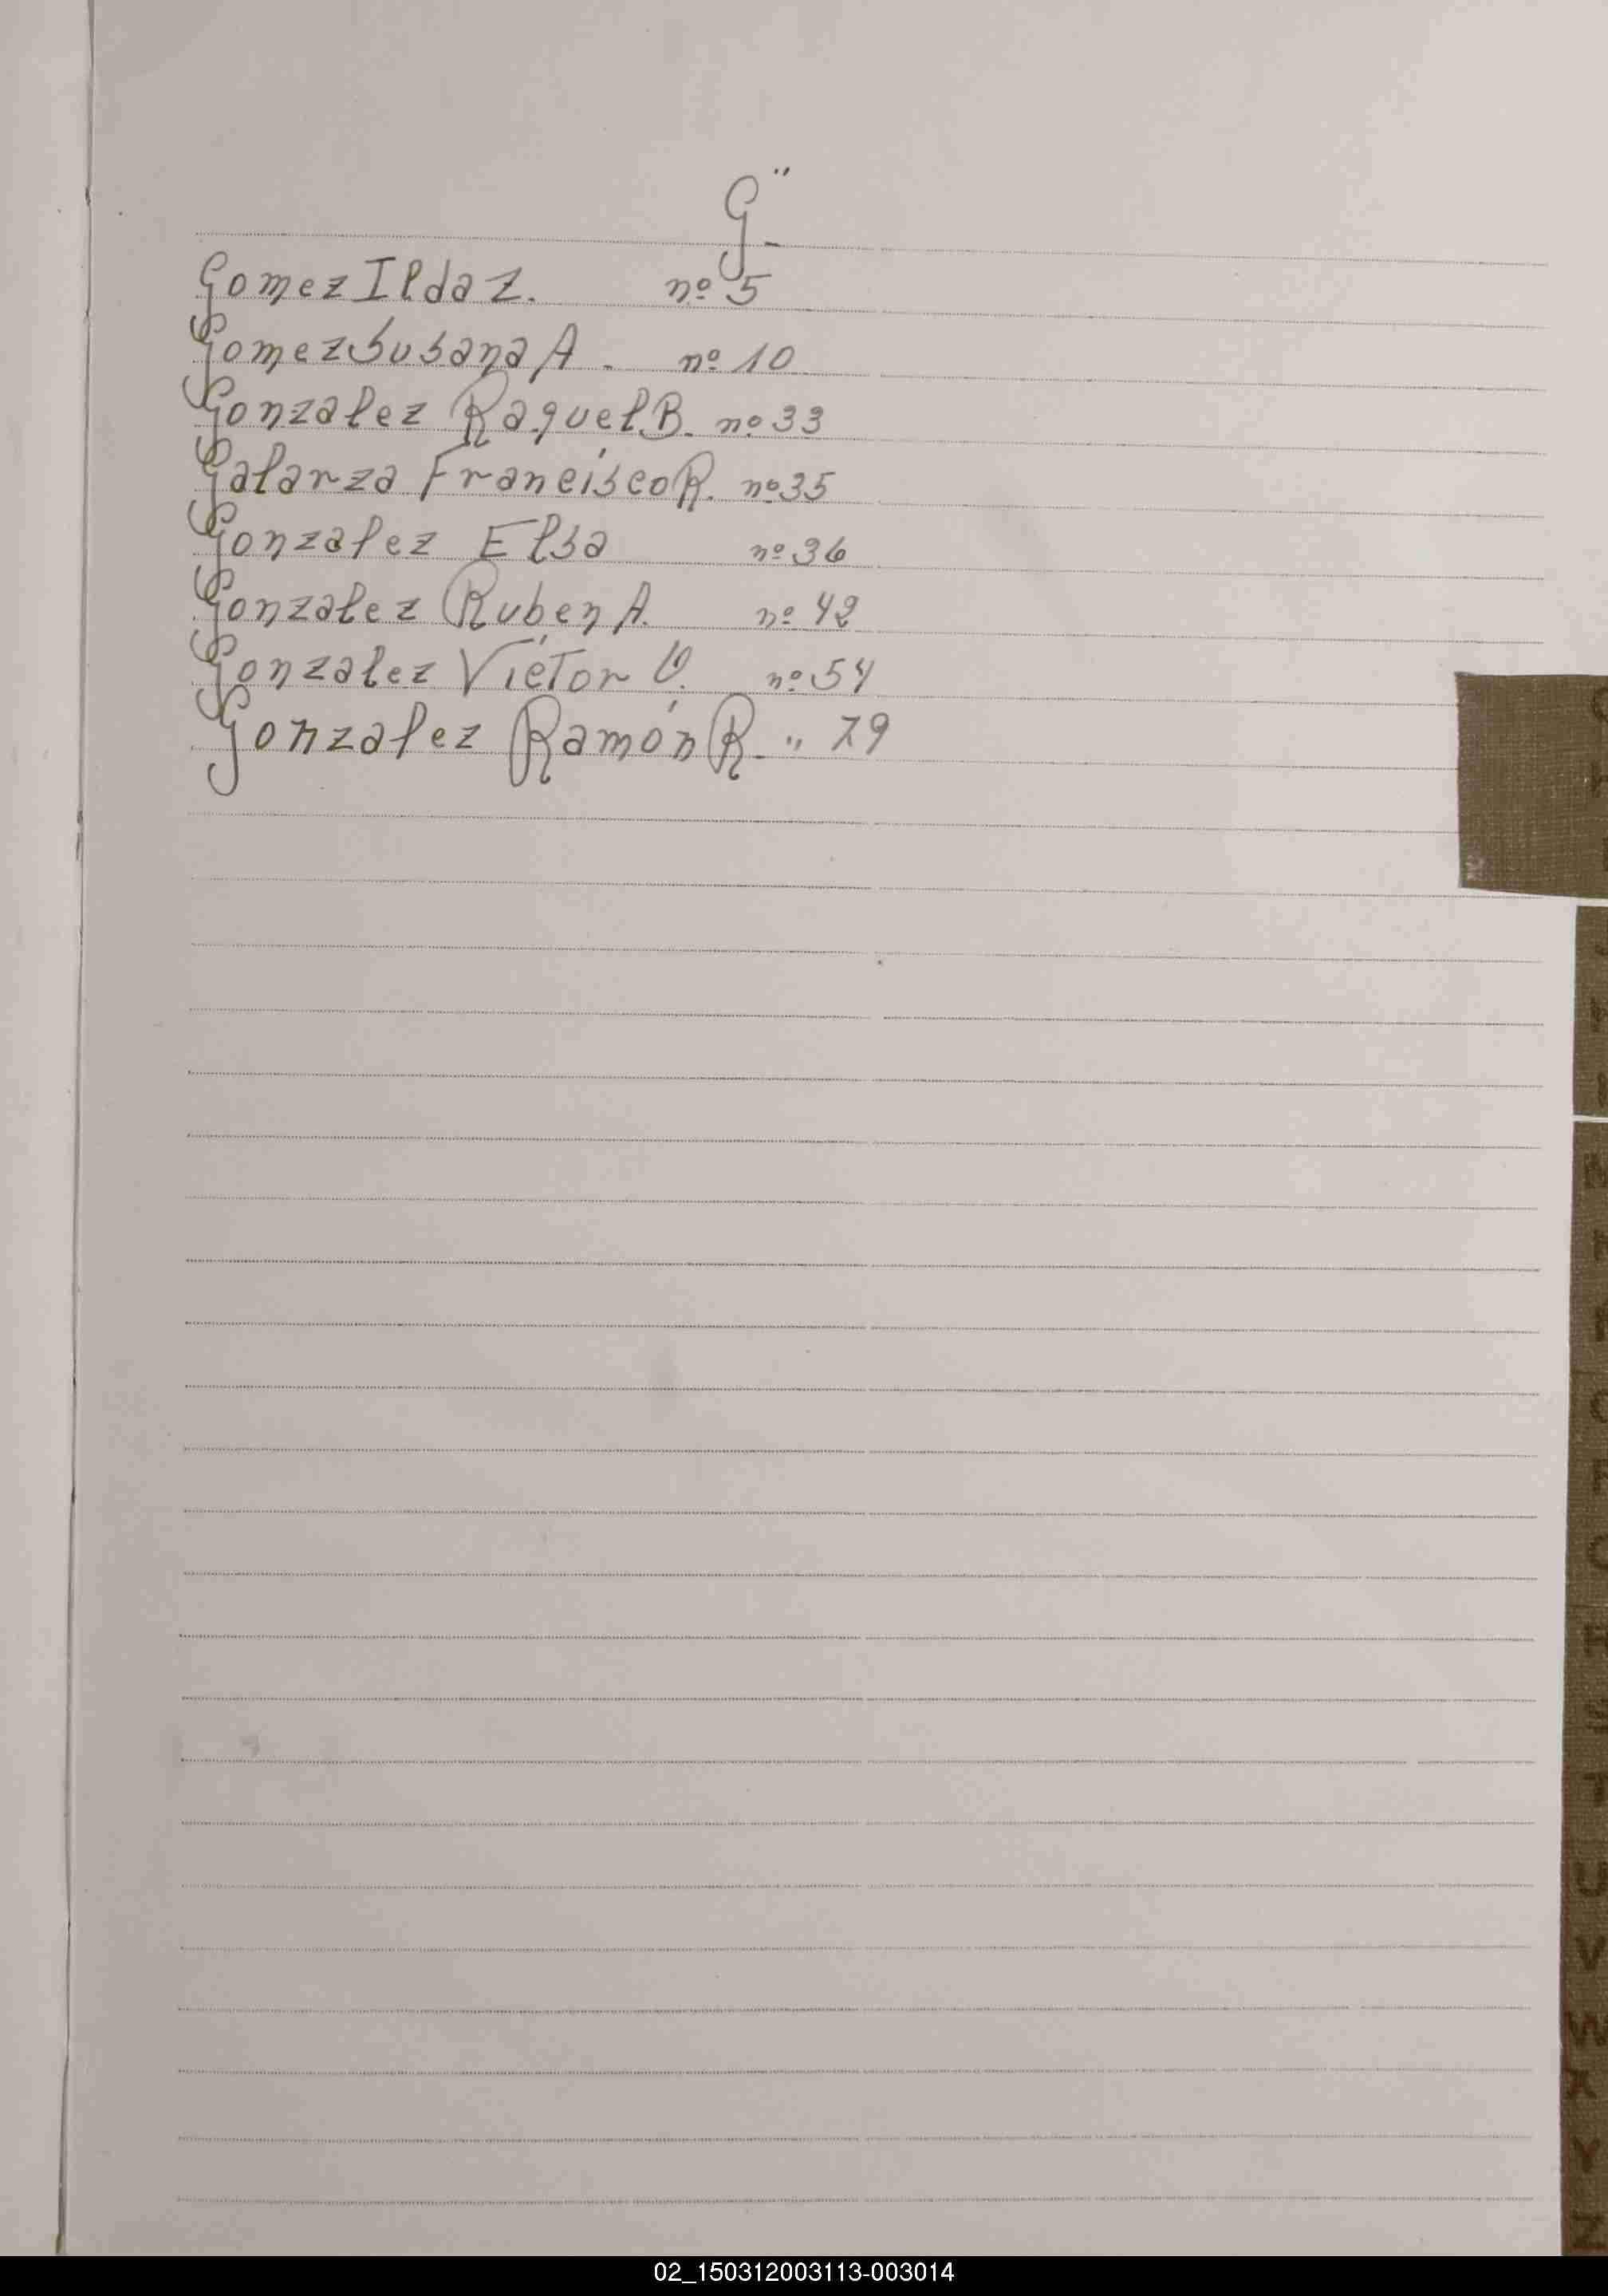 G"
Gomez Ilda Z. nº 5
Gomez Susana A. nº 10
Gonzalez Raquel B. nº 33
Galarza Francisco R. nº 35
Gonzalez Elsa nº 36
Gonzalez Ruben A. nº 42
Gonzalez Víctor O. nº 54
Gonzalez Ramón R. " 79
U
V
W
X
Y
Z
02_150312003113-003014